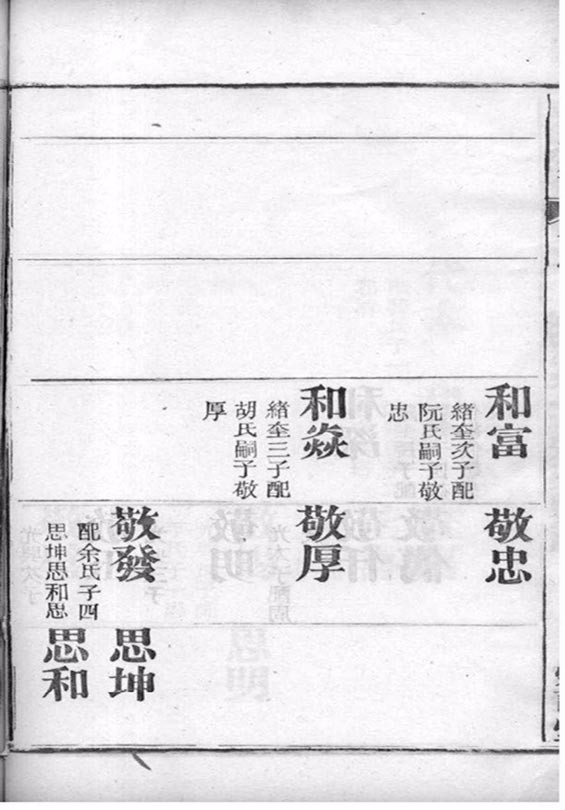 和富
緒奎次子配
阮氏嗣子敬
忠
和焱
緒奎三子配
胡氏嗣子敬
厚
敬忠
敬厚
敬發
配余氏子四
思坤思和思
思坤
思和